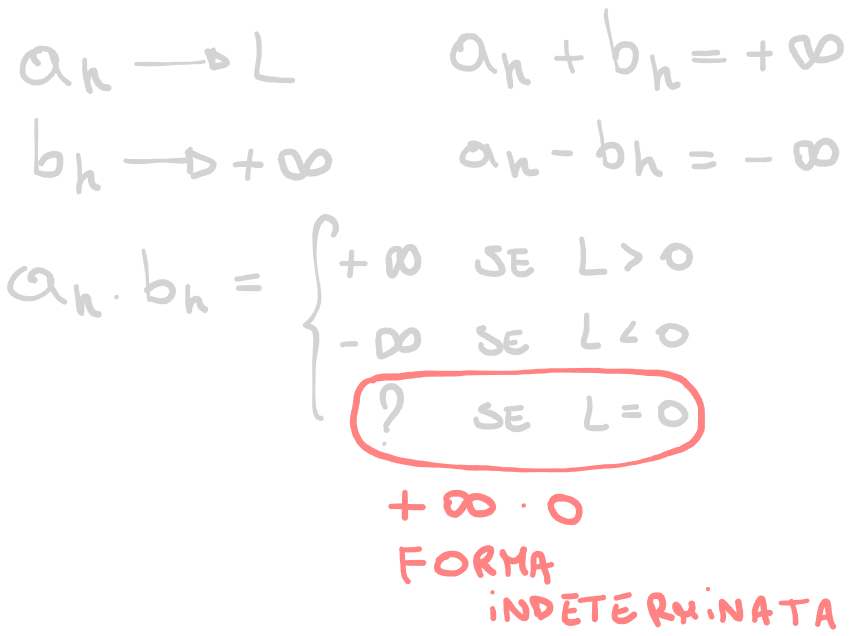 an → L
an + bn = +∞
bn → +∞
an - bn = -∞
an · bn =
+∞ SE L > 0
-∞ SE L < 0
? SE L = 0
+∞ · 0
FORMA
INDETERMINATA